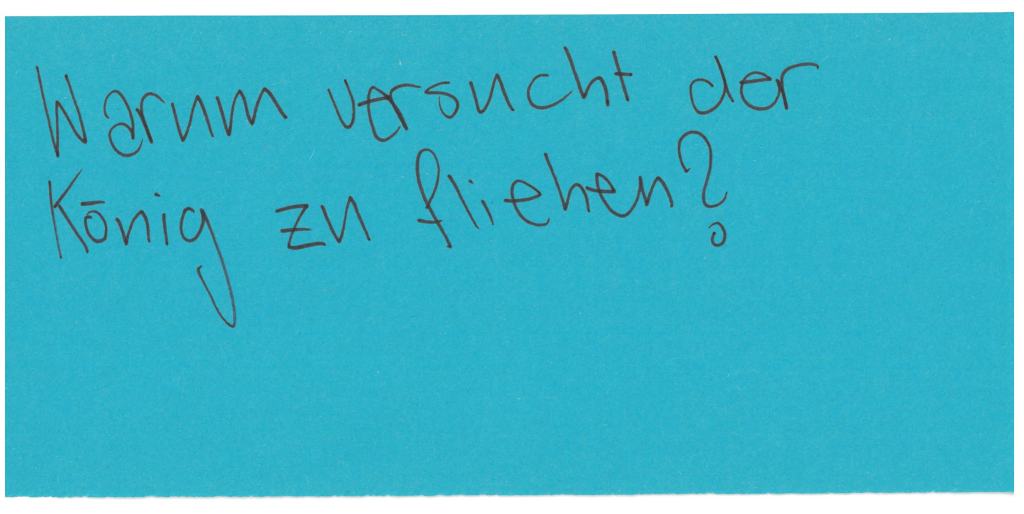 Warum versucht der
König zu fliehen?